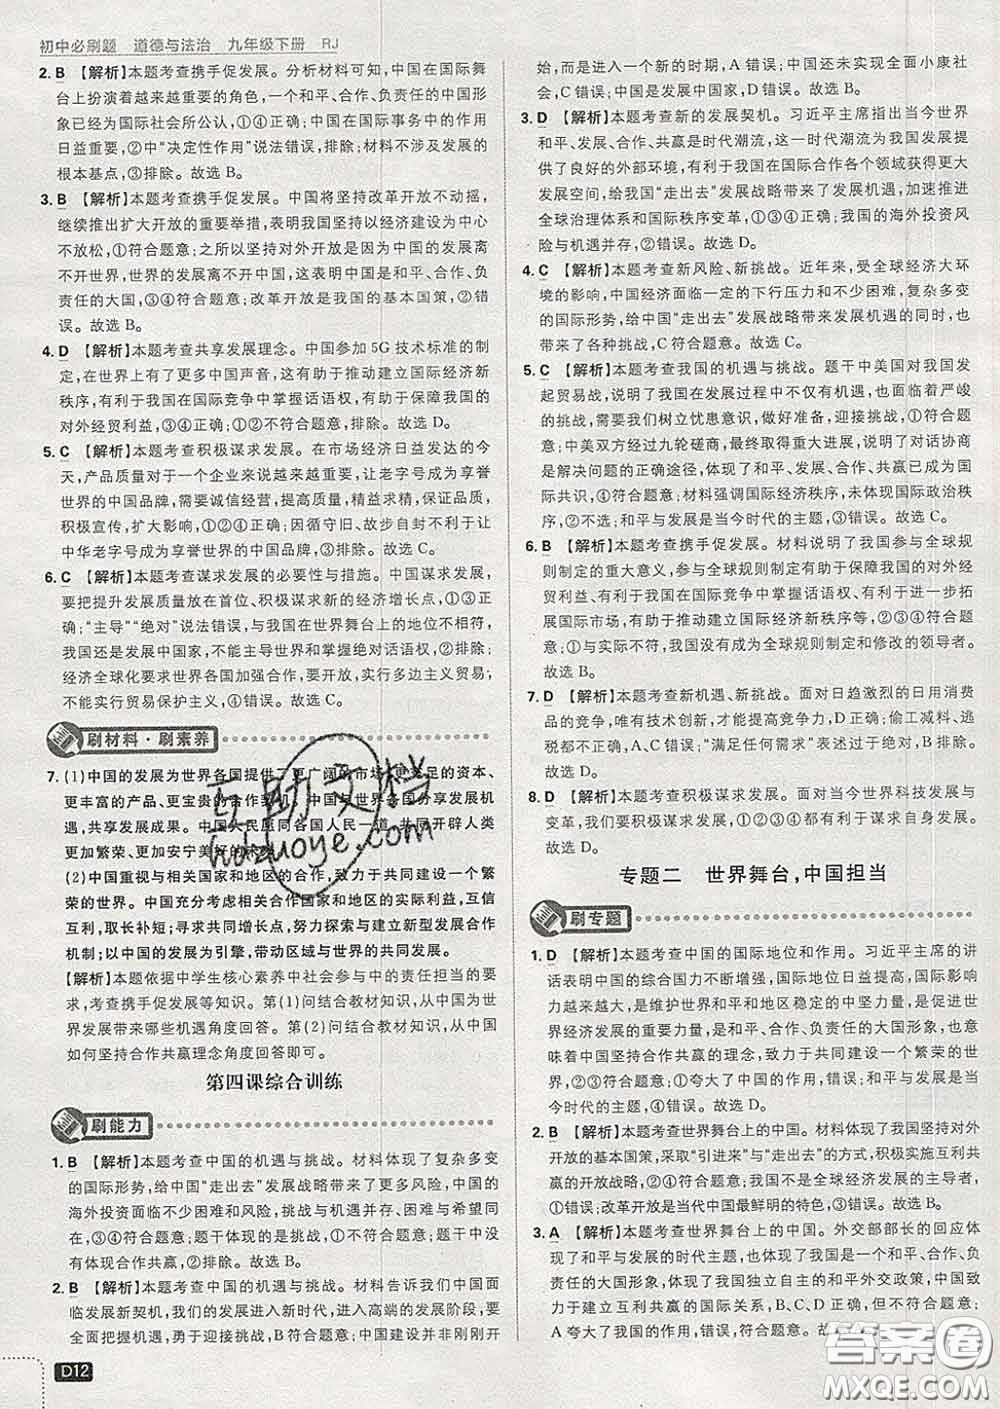 初中必刷题 道德与法治 九年级下册 RJ
2. B 【解析】本题考查携手促发展。分析材料可知,中国在国际舞
台上扮演着越来越重要的角色,一个和平、合作、负责任的中国形
象已经为国际社会所公认,①④正确;中国在国际事务中的作用
日益重要,②中“决定性作用”说法错误,排除;材料不涉及发展的
根本基点,③排除。故选 B。
3. B 【解析】本题考查携手促发展。中国将坚持改革开放不动摇,
继续推出扩大开放的重要举措,表明我国坚持以经济建设为中心
不放松,①符合题意;之所以坚持对外开放是因为中国的发展离
不开世界,世界的发展离不开中国,这表明中国是和平、合作、负
责任的大国,③④符合题意;改革开放是我国的基本国策,②错
误。故选 B。
4. D 【解析】本题考查共享发展理念。中国参加 5G 技术标准的制
定,在世界上有了更多中国声音,这有助于推动建立国际经济新
秩序,有助于我国在国际竞争中掌握话语权,有助于保障我国的
对外经贸利益,③④正确;①②不符合题意,排除。故选 D。
5. C 【解析】本题考查积极谋求发展。在市场经济日益发达的今
天,产品质量对于一个企业来说越来越重要,让老字号成为享誉
世界的中国品牌,需要诚信经营,提高质量,精益求精,保证品质,
积极宣传,扩大影响,①②④正确;因循守旧、故步自封不利于让
中华老字号成为享誉世界的中国品牌,③排除。故选 C。
6. C 【解析】本题考查谋求发展的必要性与措施。中国谋求发展,
要把提升发展质量放在首位、积极谋求新的经济增长点,①②正
确;“主导”“绝对”说法错误,与我国在世界舞台上的地位不相符,
我国是发展中国家,不能主导世界和掌握绝对话语权,②排除;
经济全球化要求世界各国加强合作、扩大开放,实行多边主义贸易;
不能实行贸易保护主义,④错误。故选 C。
刷材料·刷素养
7. (1)中国的发展为世界各国提供了更广阔的市场、更充足的资本、
更丰富的产品、更宝贵的合作契机。中国与世界各国分享发展机
遇,共享发展成果。中国人民愿同各国人民一道,共同开辟人类
更加繁荣、更加安宁美好的未来。
(2)中国重视与相关国家和地区的合作,致力于共同建设一个繁
荣的世界。中国充分考虑相关合作国家和地区的实际利益,互信
互利,取长补短;寻求共同经济增长点,努力探索与建立新型发展合作
机制;以中国的发展为引擎,带动区域与世界的共同发展。
【解析】本题依据中学生核心素养中社会参与中的责任担当的要
求,考查携手促发展等知识。第(1)问结合教材知识,从中国为世
界发展带来哪些机遇角度回答。第(2)问结合教材知识,从中国
如何坚持合作共赢理念角度回答即可。
第四课综合训练
刷能力
1. B 【解析】本题考查中国的机遇与挑战。材料体现了复杂多变
的国际形势,给中国“走出去”发展战略带来了严峻挑战,中国的
海外投资面临不少困难和风险,但也体现了困难与希望同
在,③④符合题意;题干体现的是困难、挑战,①不选;题干中没
有体现合作共赢,②排除。故选 B。
2. B 【解析】本题考查中国的机遇与挑战。材料告诉我们中国面
临发展新契机,我们的发展进入新时代,进入高端的发展阶段,要
全面把握机遇,勇于迎接挑战,B符合题意;中国建设并非刚刚开
D12
始,而是进入一个新的时期,A 错误;中国还未实现全面小康社
会,C 错误;中国是发展中国家,D 错误。故选 B。
3. D 【解析】本题考查新的发展契机。习近平主席指出当今世界
和平、发展、合作、共赢是时代潮流,这一时代潮流为我国发展提
供了良好的外部环境,有利于我国在国际合作各个领域获得更大
发展空间,给我国“走出去”发展战略带来了发展机遇,加速推进
全球治理体系和国际秩序变革,①③④正确;我国的海外投资风
险与机遇并存,②错误。故选 D。
4. C 【解析】本题考查新风险、新挑战。近年来,受全球经济大环
境的影响,中国经济面临一定的下行压力和不少困难,复杂多变
的国际形势,给中国“走出去”发展战略带来发展机遇的同时,也
带来了各种挑战,C符合题意。故选 C。
5. C 【解析】本题考查我国的机遇与挑战。题干中美国对我国发
起贸易战,说明了我国在发展过程中不仅有机遇,也面临着严峻
的挑战,需要我们树立忧患意识,做好准备,迎接挑战,①符合题
意;中美双方经过九轮磋商,最终取得重大进展,说明了对话协商
是解决问题的正确途径,体现了和平、发展、合作、共赢已成为国
际共识,③④符合题意;材料强调国际经济秩序,未体现国际政治秩
序,②不选;和平与发展是当今时代的主题,⑤错误。故选 C。
6. B 【解析】本题考查携手促发展。材料说明了我国参与全球规
则制定的重大意义,参与全球规则制定有助于保障我国的对外经
贸利益,有助于我国在国际竞争中掌握话语权,有助于进一步拓
展国际市场,有助于推动建立国际经济新秩序等,②③④符合题
意;①不符合实际,我国没有成为全球规则制定和修改的领导者。
故选 B。
7. D 【解析】本题考查新机遇、新挑战。面对日趋激烈的日用消费
品的竞争,唯有技术创新,才能提高竞争力,D 正确;偷工减料、逃
税都不正确,A、C 错误;“满足任何需求”表述过于绝对,B 排除。
故选 D。
8. D 【解析】本题考查积极谋求发展。面对当今世界科技发展与
变革,我们要积极谋求发展,①②③④都有利于谋求自身发展。
故选 D。
专题二 世界舞台,中国担当
刷专题
1. D 【解析】本题考查中国的国际地位和作用。习近平主席的讲
话表明中国的综合国力不断增强,国际地位日益提高,国际影响
力越来越大,是维护世界和平和地区稳定的中坚力量,是促进世
界经济发展的重要力量,是和平、合作、负责任的大国形象,也表
明中国坚持合作共赢的理念,致力于共同建设一个繁荣的世
界,②③符合题意;①夸大了中国的作用,错误;和平与发展是当
今时代的主题,④错误。故选 D。
2. B 【解析】本题考查世界舞台上的中国。材料体现了我国坚持对外
开放的基本国策,采取“引进来”与“走出去”的方式,积极实施互利共
赢的开放战略,②④符合题意;我国不是全球经济发展的主导者,
①错误;改革开放是当代中国最鲜明的特色,③错误。故选 B。
3. A 【解析】本题考查世界舞台上的中国。外交部部长的回应体
现了和平与发展的时代主题,说明了我国是一个和平、合作、负
责任的大国形象,体现了我国独立自主的和平外交政策,中国正
在建立互利共赢的国际关系,B、C、D 正确,但不符合题意;
A 夸大了我国的作用,错误,符合题意。故选 A。
互助文档
hdzuoye.com
答案圈
MXQE.COM